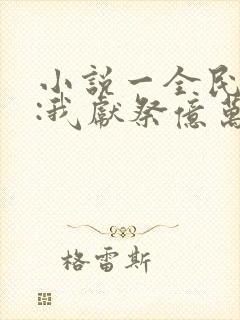 小說一全民
:我獻祭億萬
格雷斯